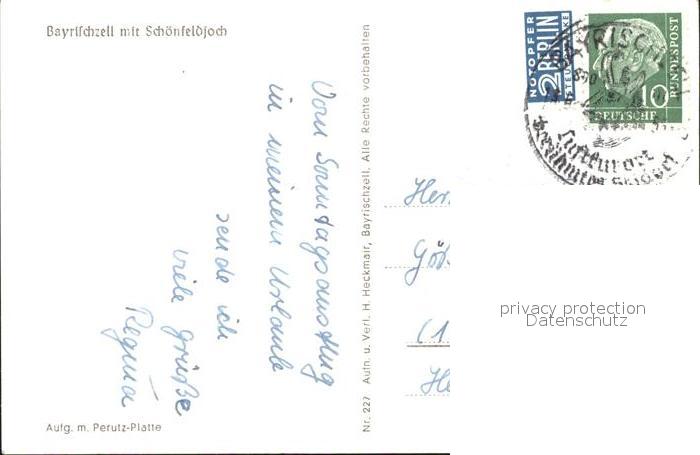 Bayrischzell mit Schönfeldjoch
Vom Sonntagsausflug
in meinem Urlaub
sende ich
viele Grüße
Regina
Aufg. m. Perutz-Platte
Nr. 227 Aufn. u. Verl. H. Heckmair, Bayrischzell, Alle Rechte vorbehalten
NOTOPFER
2 BERLIN
STEUERMARKE
10
DEUTSCHE
BUNDESPOST
BAYRISCH
Luftkurort
Her
Gö
(1
He
privacy protection
Datenschutz